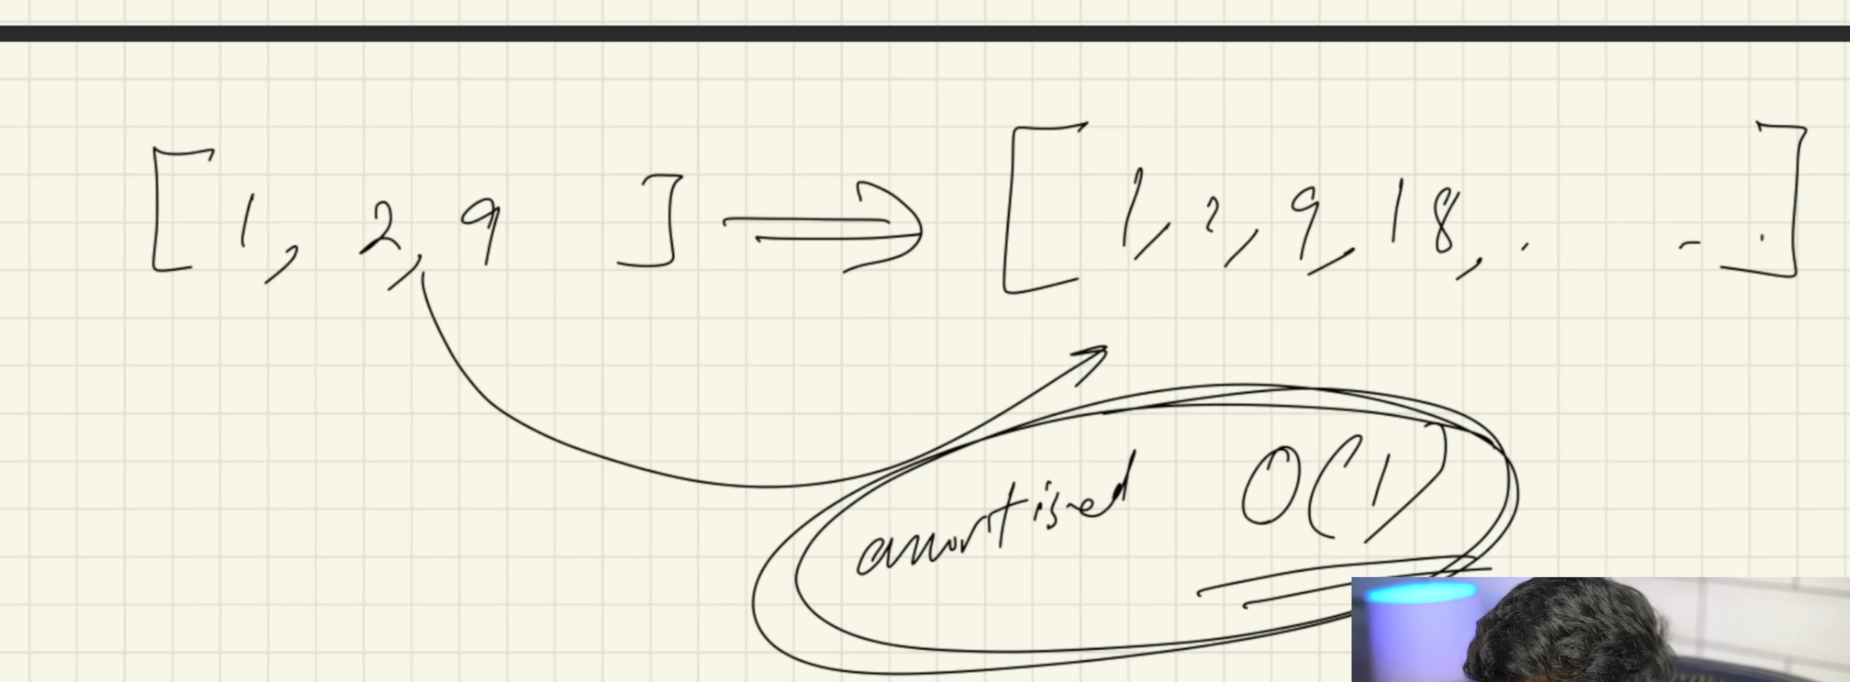 [ 1, 2, 9 ] ⇒ [ 1, 2, 9, 18, . - . ]
amortised O(1)